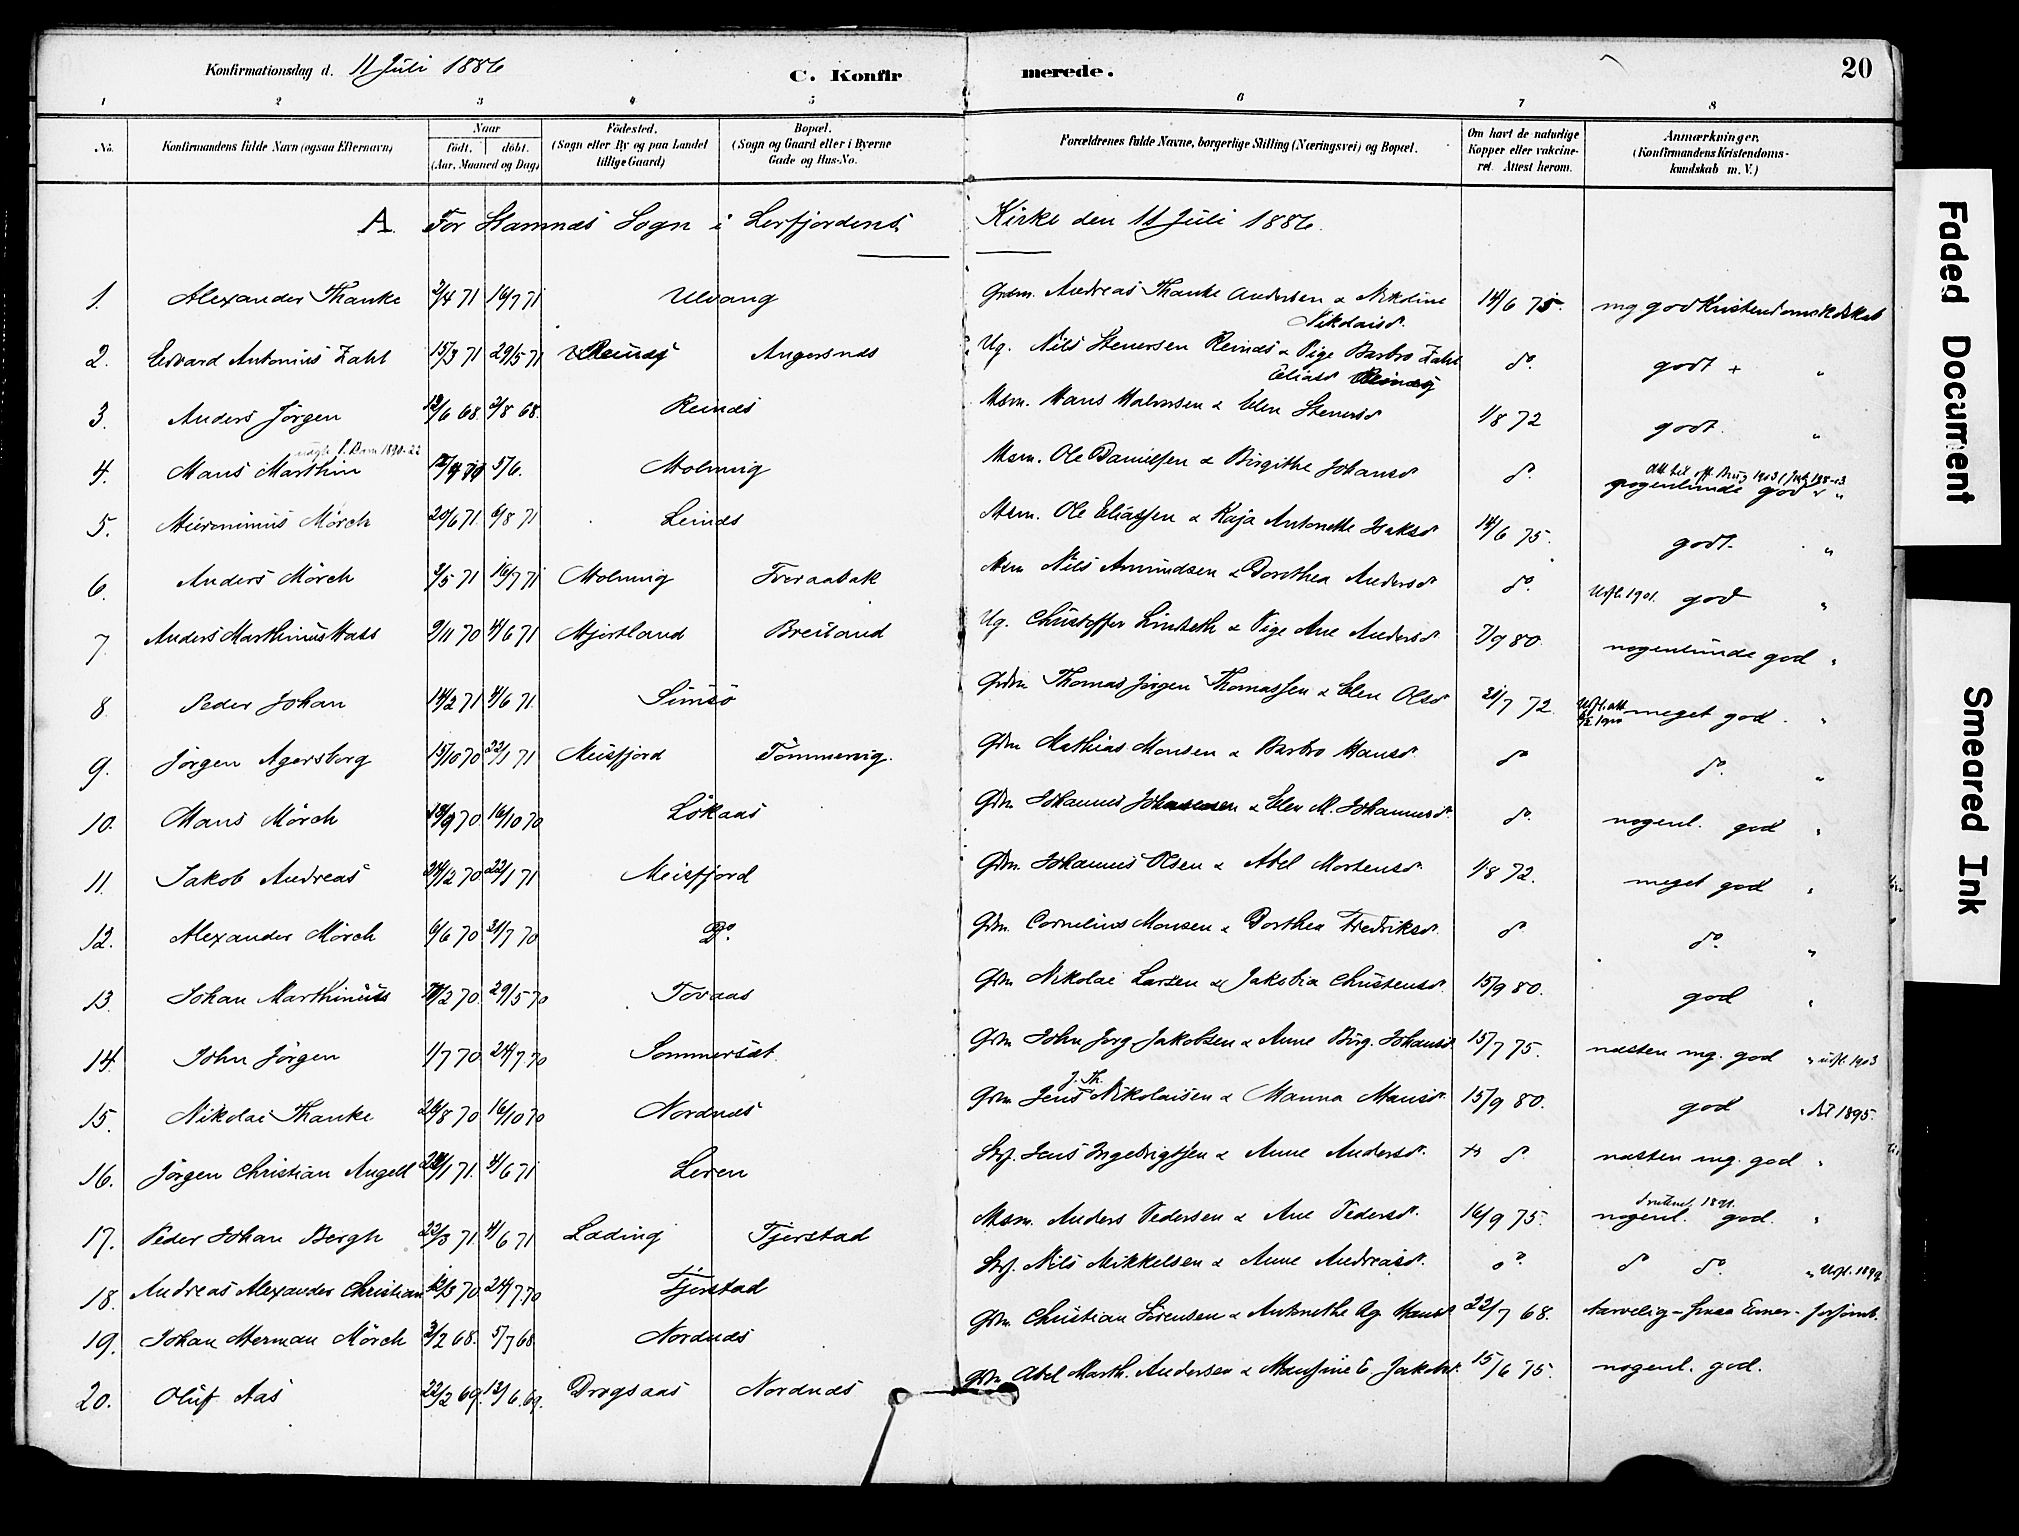 Konfirmationsdag d. 11 Juli 1886
C. Konfirmerede.
20
1 2 3 4 5 6 7 8
No. Konfirmandens fulde Navn (ogsaa Efternavn) Naar födt. döbt. (Aar, Maaned og Dag) Födested. (Sogn eller By og paa Landet tillige Gaard) Bopæl. (Sogn og Gaard eller i Byerne Gade og Hus-No. Forældrenes fulde Navne, borgerlige Stilling (Næringsvei) og Bopæl. Om havt de naturlige Kopper eller vakcineret. Attest herom. Anmærkninger. (Konfirmandens Kristendomskundskab m. V.)
A. For Stamnæs Sogn i Lerfjordens Kirke den 11 Juli 1886.
1. Alexander Thanke 2/4 71 16/7 71 Ulvang Grdm. Andreas Thanke Andersen & Nikoline Nikolaisd. 14/6 75. mg god Kristendomskdskab
2. Edvard Antonius Zahl 15/3 71 29/5 71 Angersnæs Ug. Nils Stenersen Reinæs & Pige Barbro Zahl Eliasd do godt + "
3. Anders Jörgen 12/6 68. 2/8 68. Reinæs Msm. Hans & Elen Stenersd 1/8 72 godt "
4. Hans Marthin 5/6. Holmvig Msm. Ole Danielsen & Birgithe Johansd do. nogenlunde god "
5. Hieronimus Mörch 20/6 71 6/8 71 Leinæs Msm. Ole Eliassen & Kaja Antonette Isaksd 14/6 75. godt "
6. Anders Mörch 3/5 71 16/7 71 Holmvig Tveraabak Msm Nils Amundsen & Dorothea Andersd do. Udfl. 1901. god "
7. Anders Marthinus Hass 9/11 70 4/6 71 Hjertland Breiland Ug. Christoffer Lindseth & Pige Ane Andersd 7/9 80. nogenlunde god "
8. Peder Johan 14/2 71 4/6 71. Simsö Grdm Thomas Jörgen Thomassen & Elen Olsd 21/7 72. meget god. "
9. Jörgen Agersborg 15/10 70 22/1 71 Meisfjord Tömmervig. Grdm Mathias Monsen & Barbro Hansd do do. "
10. Hans Mörch 18/9 70 16/10 70 Lökaas Grdm Johannes Johannesen & Elen M. Johannesd. do. nogenl. god "
11. Jakob Andreas 24/12 70 22/1 71 Meisfjord Grdm. Johannes Olsen & Abel Mortensd. 1/8 72. meget god "
12. Alexander Mörch 6/6 70 31/7 70 Do. Grdm. Cornelius Monsen & Dorthea Fredriksd. do do. "
13. Johan Marthinus 29/5 70 Tovaas Grdm Nikolai Larsen & Jakobia Christensd. 15/9 80. god "
14. John Jörgen 1/7 70 24/7 70 Sommersæt. Grdm John Jörg Jakobsen & Anne Birg. Johansd. 15/7 75. næsten mg. god " udfl. 1903
15. Nikolai Thanke 28/8 70 16/10 70 Nordnæs Grdm Jens J. Th. Nikolaisen & Hanna Hansd. 15/9 80. god " Att 1895.
16. Jörgen Christian Angell 28/1 71. 4/6 71 Leren Strf. Jens Ingebrigtsen & Anne Andersd. do. næsten mg. god "
17. Peder Johan Bergh 22/3 71 4/6 71 Lading Fjerstad Msm. Anders Pedersen & Ane Pedersd. 16/9 75. nogenl. god. "
18. Andreas Alexander Christian 12/3 70 24/7 70 Fjerstad Strf. Nils Mikkelsen & Anne Andreasd. do. do do. " Udfl. 1892
19. Johan Herman Mörch 3/2 68. 5/7 68 Nordnæs Grdm Christian Sörensen & Antonethe Ag. Hansd 22/7 68. tarvelig - smaa Evner - forsömt.
20. Oluf Aas 22/2 69. 12/6.69. Dragsaas Nordnæs Grdm Abel Marth. Andersen & Hansine E. Jakobsd. 15/6 75. nogenl. god.
Faded Document
Smeared Ink